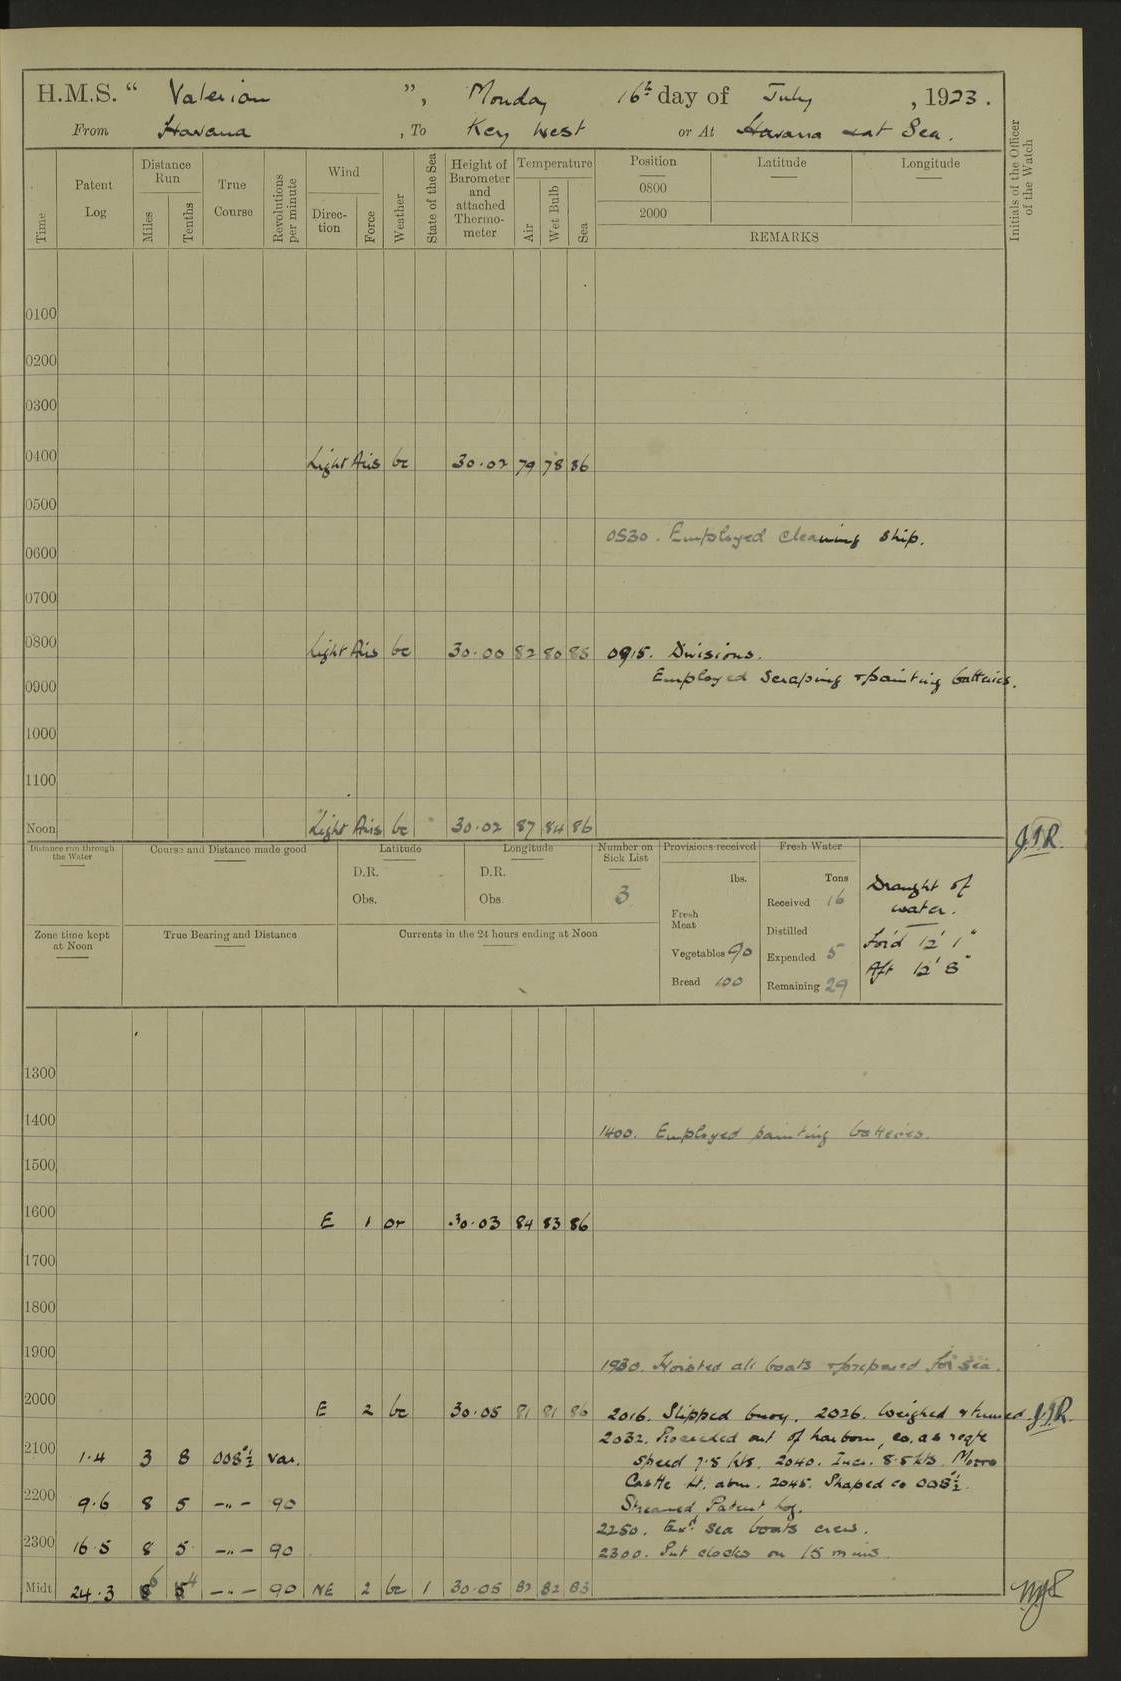 H.M.S. “ Valerian ”, Monday 16th day of July , 1923.
From Havana , To Key West or At Havana & at Sea.
Time
Patent Log
Distance Run
Miles
Tenths
True Course
Revolutions per minute
Wind
Direc-tion
Force
Weather
State of the Sea
Height of Barometer and attached Thermo-meter
Temperature
Air
Wet Bulb
Sea
Position
0800
2000
Latitude
Longitude
REMARKS
Initials of the Officer of the Watch
0100
0200
0300
0400 Light Airs bc 30.02 79 78 86
0500
0530. Employed cleaning ship.
0600
0700
0800 Light Airs bc 30.00 82 80 85 0915. Divisions.
Employed scraping & painting batteries.
0900
1000
1100
Noon Light Airs bc 30.02 87 84 86
J.J.R.
Distance run through the Water
Course and Distance made good
Latitude
D.R.
Obs.
Longitude
D.R.
Obs.
Number on Sick List
3
Provisions received
lbs.
Fresh Meat
Vegetables 90
Bread 100
Fresh Water
Tons
Received 16
Distilled
Expended 5
Remaining 29
Draught of
water.
For'd 12' 1"
Aft 12' 8"
Zone time kept at Noon
True Bearing and Distance
Currents in the 24 hours ending at Noon
1300
1400
1400. Employed painting batteries.
1500
1600 E 1 or 30.03 84 83 86
1700
1800
1900
1930. Hoisted all boats & prepared for sea.
2000 E 2 bc 30.05 81 81 86 2016. Slipped buoy. 2026. Weighed & turned J.J.R.
2032. Proceeded out of harbour, co. as reqte
2100 1.4 3 8 008°½ Var. speed 7.8 kts. 2040. Incr. 8.5 kts. Morro
Castle Lt. abm. 2045. Shaped co 008°½.
2200 9.6 8 5 -"- 90 Streamed Patent Log.
2250. Exd. Sea boats crew.
2300 16.5 8 5 -"- 90 2300. Put clocks on 15 mins.
Midt 24.3 6 4 -"- 90 NE 2 bc 1 30.05 82 82 83